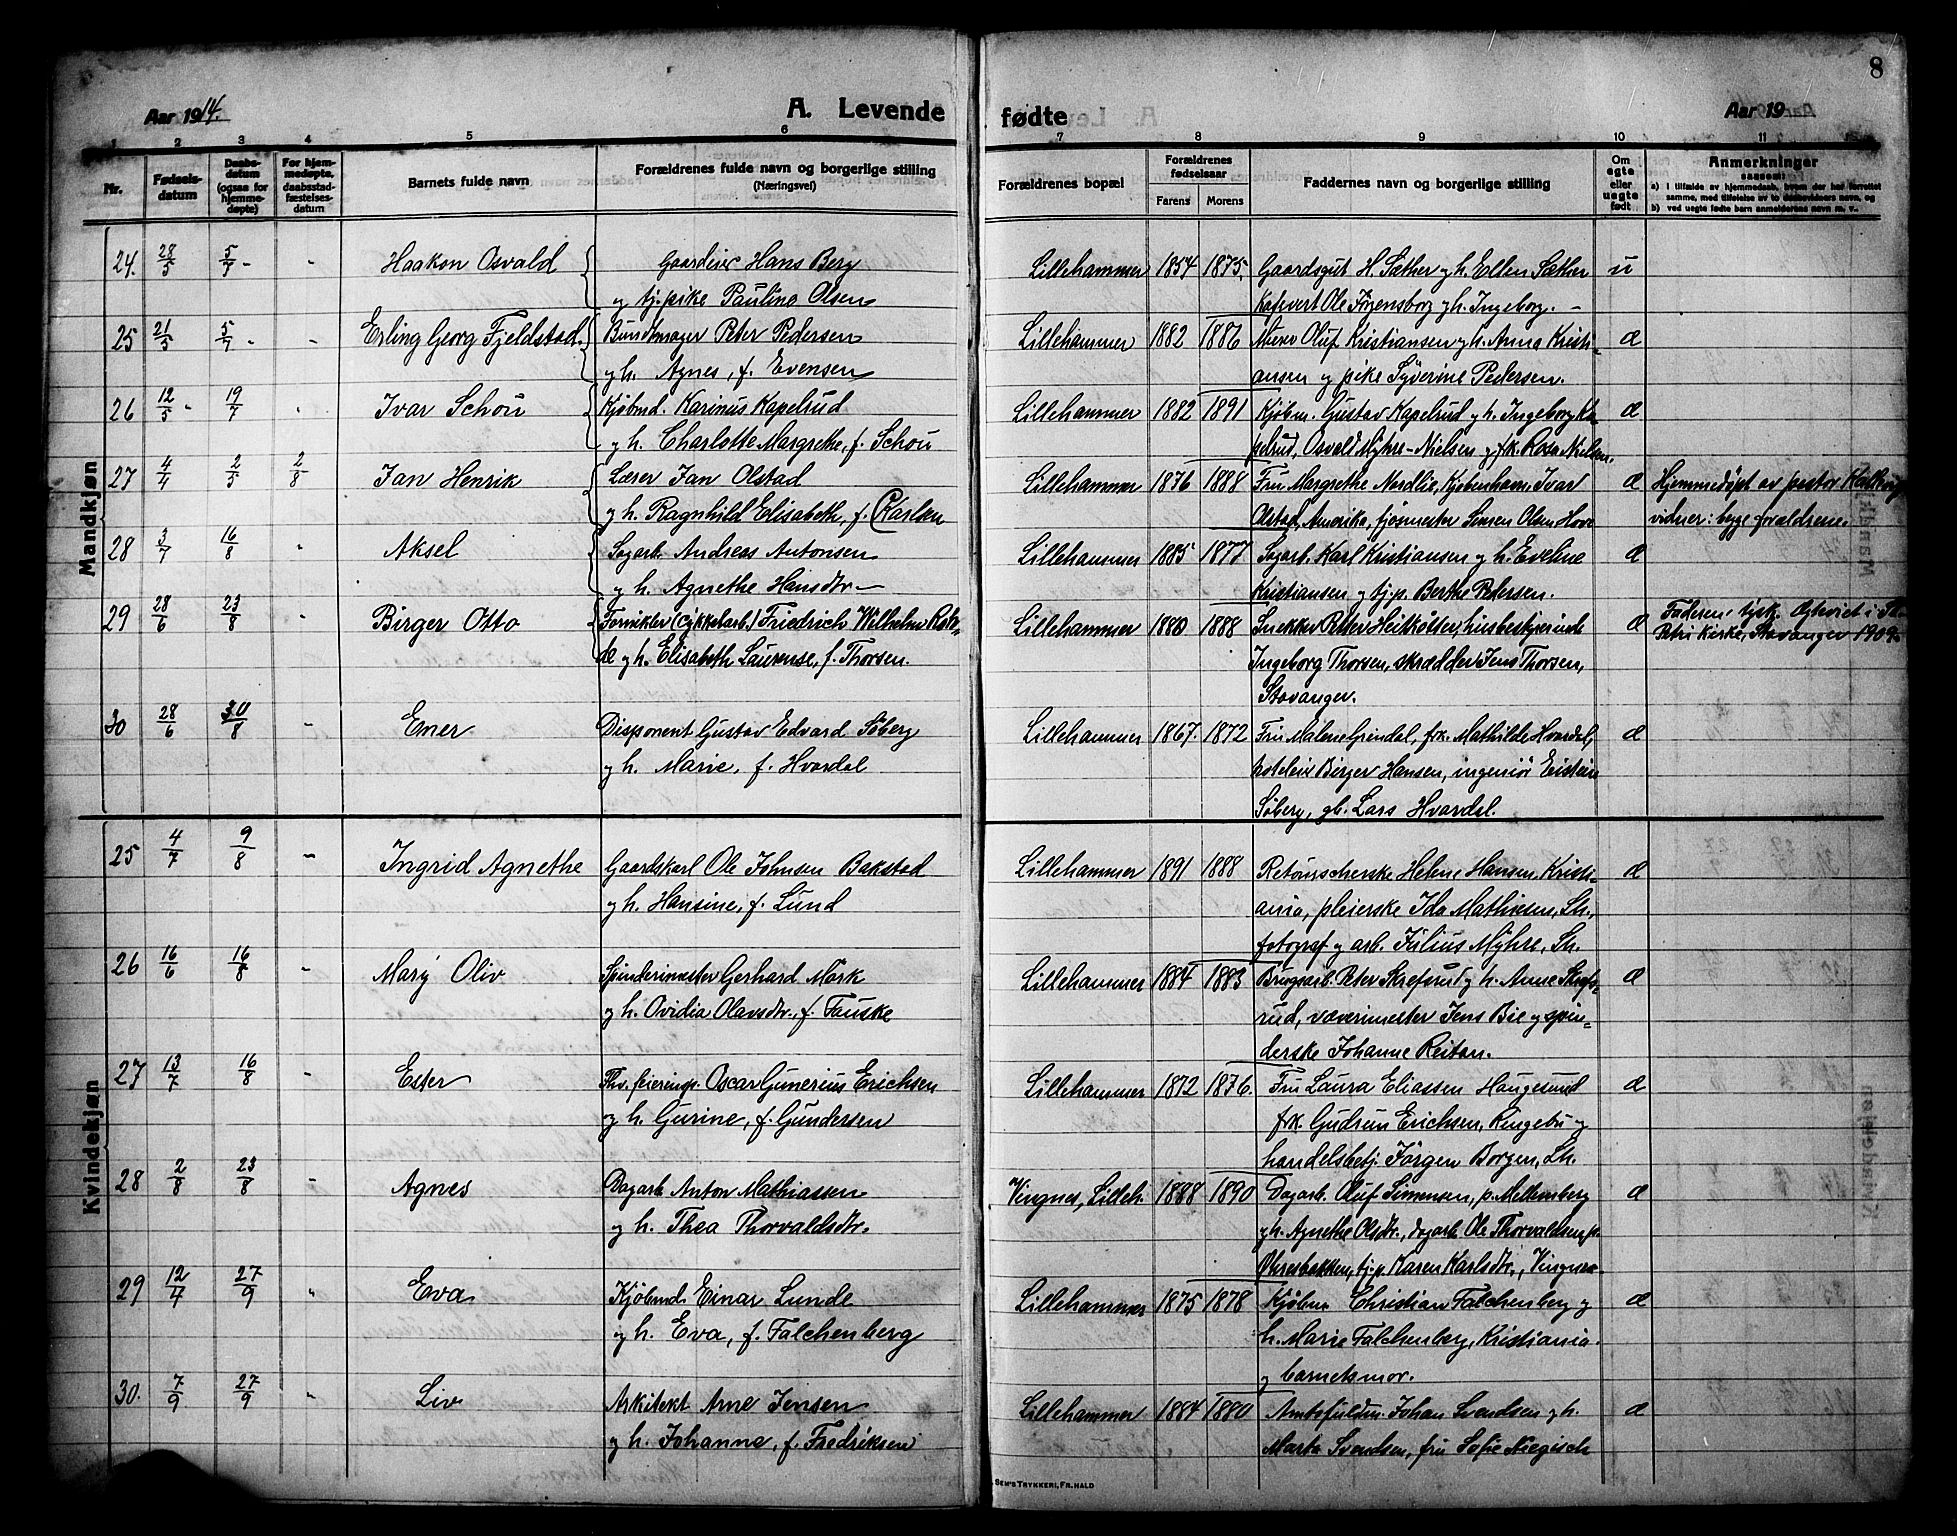 8
Aar 1914.
A. Levende
fødte
Aar 19
1 2 3 4 5 6 7 8 9 10 11
Nr.
Fødsels-
datum
Daabs-
datum
(ogsaa for
hjemme-
døpte)
For hjem-
medøpte,
daabsstad-
fæstelses-
datum
Barnets fulde navn
Forældrenes fulde navn og borgerlige stilling
(Næringsvei)
Forældrenes bopæl
Forældrenes
fødselsaar
Farens Morens
Faddernes navn og borgerlige stilling
Om
ægte
eller
uægte
født
Anmerkninger
saasom:
a) i tilfælde av hjemmedaab, hvem der har forrettet
samme, med tilføielse av to daabsvidners navn, og
b) ved uægte fødte barn anmelderens navn m. v.
Mandkjøn
24. 28/5 5/7 - " Haakon Osvald Gaardeier Hans Berg Lillehammer 1854 1875, Gaardsgut H. Sæther og h. Ellen Sæther u
og tj.pike Pauline Olsen Ole Jørensborg og h. Ingeborg. -
25 21/5 5/7 - " Erling Georg Fjeldstad. Buntmager Peter Pedersen Lillehammer 1882 1886 Murer Oluf Kristiansen og h. Anna Kristi- æ
og h. Agnes, f. Evensen ansen og pike Syverine Pedersen.
26 12/5 - 19/7 " Ivar Schou Kjøbmd. Karinus Kapelrud Lillehammer 1882 1891 Kjøbm. Gustav Kapelrud og h. Ingeborg Ka- æ
og h. Charlotte Margrethe, f. Schou pelrud, Osvald Myhre-Nielsen og frk. Rosa Nielsen.
27 4/4 2/5 2/8 Jan Henrik Lærer Jan Olstad Lillehammer 1876 1888 Fru Margrethe Nordlie, Kjøbenhavn, Ivar æ Hjemmedøpt av pastor
og h. Ragnhild Elisabeth, f. Karlsen Olstad, Amerika, fjøsmester Simen Olsen Hove vidner: begge forældrene.
28 3/7 16/8 " Aksel Sagarb. Andreas Antonsen Lillehammer 1885 1877 Sagarb. Karl Kristiansen og h. Eveline æ
og h. Agnethe Hansdtr. Kristiansen og tj.p. Berthe Pedersen.
29 28/6 23/8 " Birger Otto Fornikler (cykkelarb.) Friedrich Wilhelm Lillehammer 1880 1888 Snekker Peter Heitkötter, husbestyrerinde æ Faderen tysk. Egteviet i St.
de og h. Elisabeth Laurense, f. Thorsen. Ingeborg Thorsen, skrædder Jens Thorsen, Petri kirke, Stavanger 1909.
Stavanger.
30 28/6 30/8 " Ener Disponent Gustav Edvard Søberg Lillehammer 1867. 1872 Fru Malene Grindal, frk. Mathilde Hvardal, æ
og h. Marie, f. Hvardal hoteleier Birger Hansen, ingeniør Eistein
Søberg, gb. Lars Hvardal.
Kvindekjøn
25 4/7 9/8 " Ingrid Agnethe Gaardskarl Ole Johnsen Bakstad Lillehammer 1891 1888 Retoucherske Helene Hansen, Kristi- æ
og h. Hansine, f. Lund ania, pleierske Ida Mathisen, Lh.,
fotograf og arb. Julius Myhre, Lh.
26 16/6 16/8 " Mary Oliv Spinderimester Gerhard Mørk Lillehammer 1884 1883 Brugsarb. Peter Skrefsrud og h. Anne Skrefs- æ
og h. Ovidia Olavsdtr., f. Fauske rud, væverimester Jens Bie og spin-
derske Johanne Reitan.
27 13/7 16/8 " Ester Thv. feieringsp. Oscar Gunerius Erichsen Lillehammer 1872 1876. Fru Laura Eliassen Haugesund æ
og h. Gurine, f. Gundersen frk. Gudrun Erichsen, Ringebu og
handelsbetj. Jörgen Borgen, Lh.
28 2/8 23/8 " Agnes Dagarb. Anton Mathiassen Vingnes, Lilleh. 1888 1890 Dagarb. Oluf Simensen, p. Messenberg æ
og h. Thea Thorvaldsdtr. og h. Agnethe Olsdtr., dagarb. Ole Thorvaldsen p.
Øhresbakken, tj.p. Karen Karlsdtr., Vingnes.
29 12/7 27/9 " Eva Kjøbmd. Einar Lunde Lillehammer 1875 1878 Kjøbm. Christian Falchenberg og æ
og h. Eva, f. Falchenberg h. Marie Falchenberg, Kristiania
og barnets mor.
30. 7/9 27/9 " Liv Arkitekt Arne Jensen Lillehammer 1884 1880 Amtsfuldm. Johan Svendsen og h. æ
og h. Johanne, f. Fredriksen Marta Svendsen, fru Sofie Niegisch
SEM'S TRYKKERI, FR.HALD